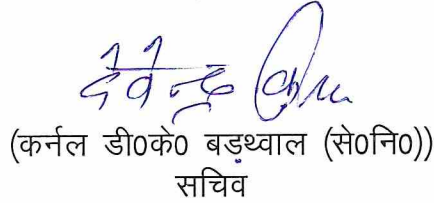 देवेन्द्र
(कर्नल डी0के0 बड़थ्वाल (से0नि0))
सचिव